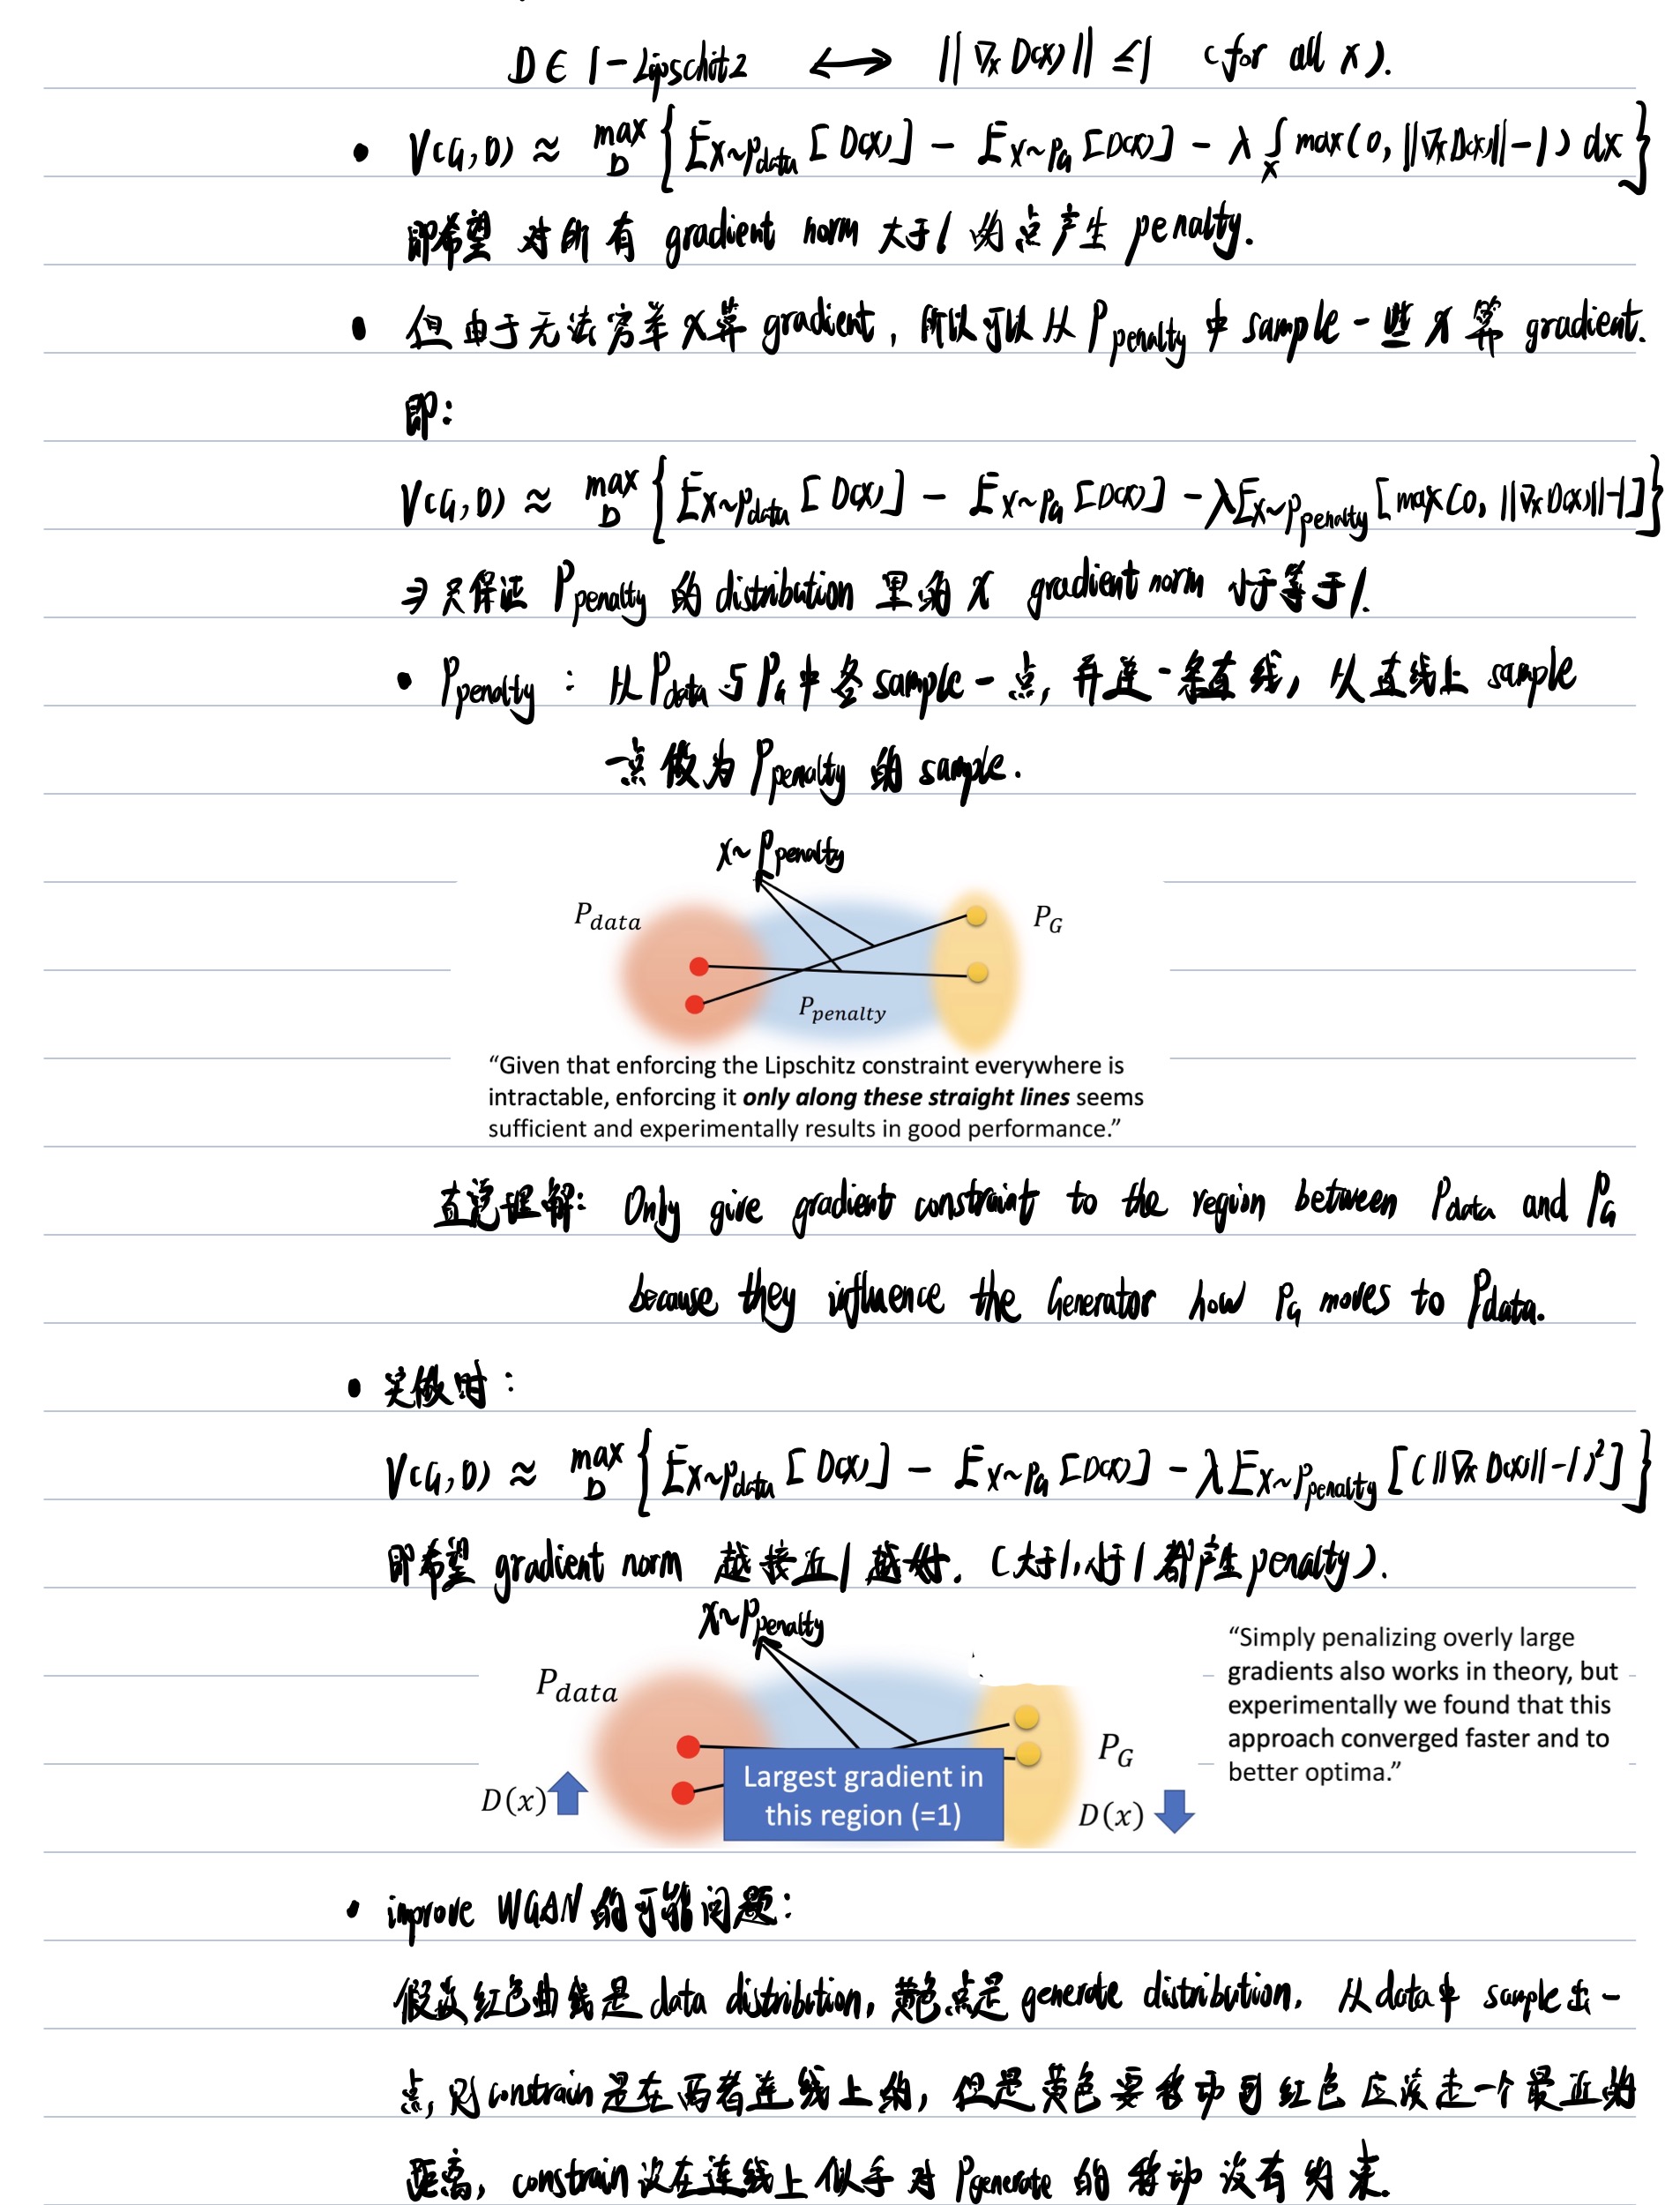 D ∈ 1-Lipschitz ⟷ ||∇x D(x)|| ≤ 1 (for all x).
• V(G,D) ≈ max_D { E_{x~Pdata} [D(x)] - E_{x~PG} [D(x)] - λ ∫_x max(0, ||∇x D(x)|| - 1) dx }
即希望 对所有 gradient norm 大于1 的点产生 penalty.
• 但由于无法穷举 x 算 gradient, 所以可以从 Ppenalty 中 sample 一些 x 算 gradient.
即:
V(G,D) ≈ max_D { E_{x~Pdata} [D(x)] - E_{x~PG} [D(x)] - λ E_{x~Ppenalty} [max(0, ||∇x D(x)|| -1] }
⇒ 只保证 Ppenalty 的 distribution 里的 x gradient norm 小于等于1.
• Ppenalty : 从 Pdata 与 PG 中各 sample 一点, 并连一条直线, 从直线上 sample
一点做为 Ppenalty 的 sample.
x~Ppenalty
P_data
P_G
P_penalty
“Given that enforcing the Lipschitz constraint everywhere is
intractable, enforcing it only along these straight lines seems
sufficient and experimentally results in good performance.”
直觉理解: Only give gradient constraint to the region between Pdata and PG
because they influence the Generator how PG moves to Pdata.
• 实做时:
V(G,D) ≈ max_D { E_{x~Pdata} [D(x)] - E_{x~PG} [D(x)] - λ E_{x~Ppenalty} [(||∇x D(x)|| -1)²] }
即希望 gradient norm 越接近1越好. (大于1,小于1都产生penalty).
x~Ppenalty
“Simply penalizing overly large
gradients also works in theory, but
experimentally we found that this
approach converged faster and to
better optima.”
P_data
P_G
Largest gradient in
this region (=1)
D(x)
D(x)
• improve WGAN 的可能问题:
假设红色曲线是 data distribution, 黄色点是 generate distribution. 从 data 中 sample 出一
点, 则 constrain 是在两者连线上的, 但是黄色要移动到红色应该走一个最近的
距离, constrain 设在连线上似乎对 Pgenerate 的移动没有约束.